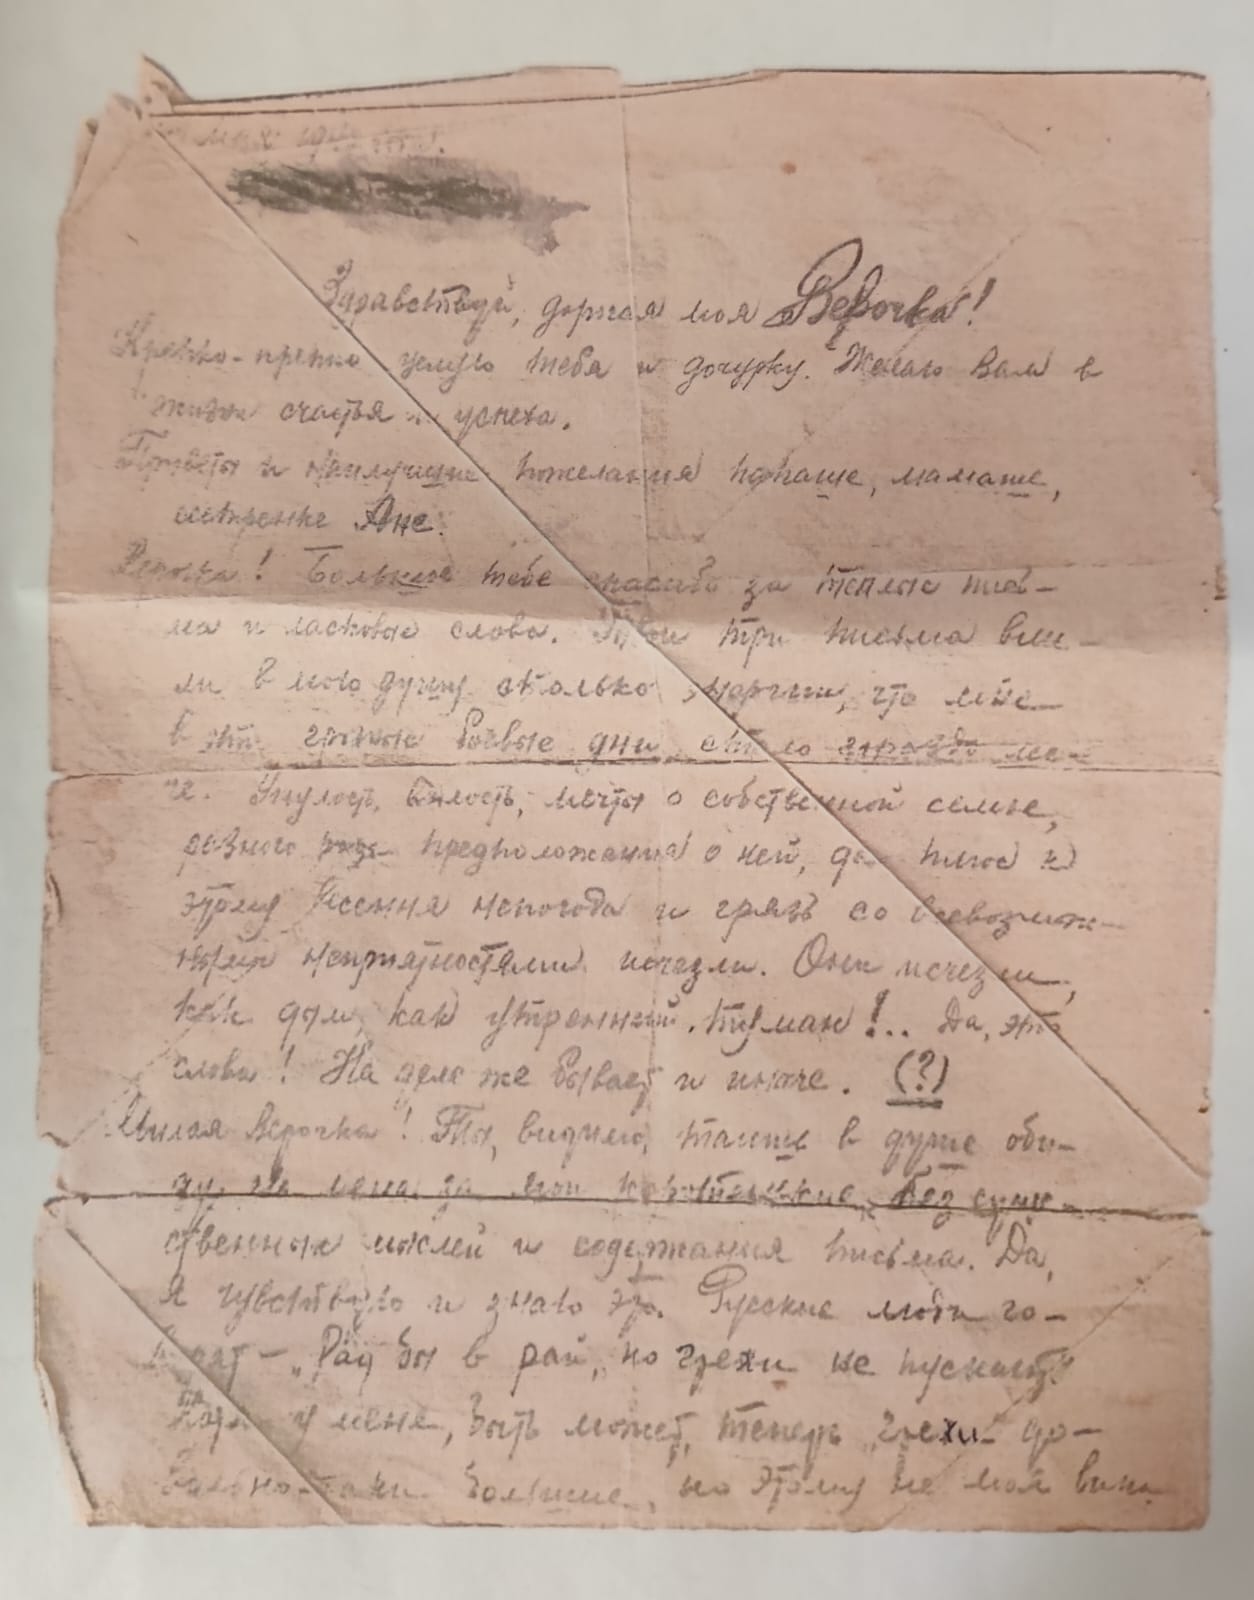 мая 194
Здравствуй, дорогая моя Верочка!
Крепко-крепко целую тебя и дочурку. Желаю Вам в
жизни счастья и успеха.
Приветы и наилучшие пожелания папаше, мамаше,
сестренке Ане.
Верочка! Большое тебе спасибо за теплые пись-
ма и ласковые слова. Твои три письма вли-
ли в мою душу столько энергии, что мне
в эти грозные боевые дни стало гораздо ле-
че. Унылость, вялость, мечты о собственной семье,
разного рода предположения о ней, да плюс к
этому весенняя непогода и грязь со всевозмож-
ными неприятностями исчезли. Они исчезли,
как дым, как утренний туман!.. Да, это
слова! На деле же бывает и иначе. (?)
Милая Верочка! Ты, видимо, таишь в душе оби-
ду на меня за мои коротенькие, без суще-
ственных мыслей и содержания письма. Да,
я чувствую и знаю это. Русские люди го-
ворят - "Рад бы в рай, но грехи не пускают".
у меня, быть может, теперь "грехи" до-
вольно-таки большие, но этому не моя вина